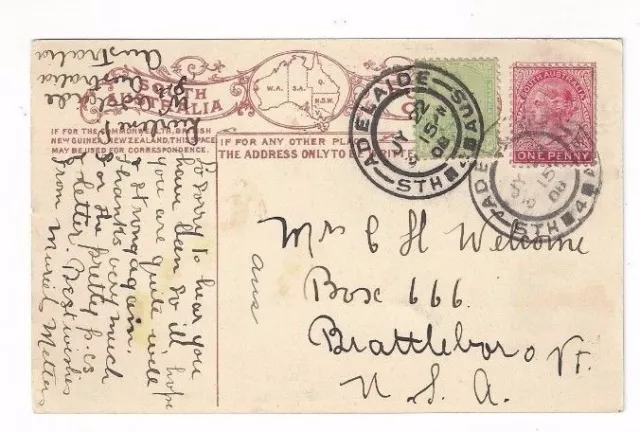 SOUTH
AUSTRALIA
W.A.
S.A.
Q.
N.S.W.
IF FOR THE COMMONWEALTH, BRITISH
NEW GUINEA, OR NEW ZEALAND, THIS SPACE
MAY BE USED FOR CORRESPONDENCE.
IF FOR ANY OTHER PLACE
THE ADDRESS ONLY TO BE WRITTEN
ADELAIDE
JY 22
9 15
08
STH AUS
SOUTH AUSTRALIA
ONE PENNY
ADELAIDE
JY
9 15
08
STH A
4
Mrs C H Welcome
Box 666
Brattleboro Vt.
U. S. A.
aus
Adelaide
Sth Australia
Australia
So sorry to hear you
have been so ill, hope
you are quite well
& strong again.
Thanks very much
for the pretty p.cs
& letter. Best wishes
from Muriel Metters